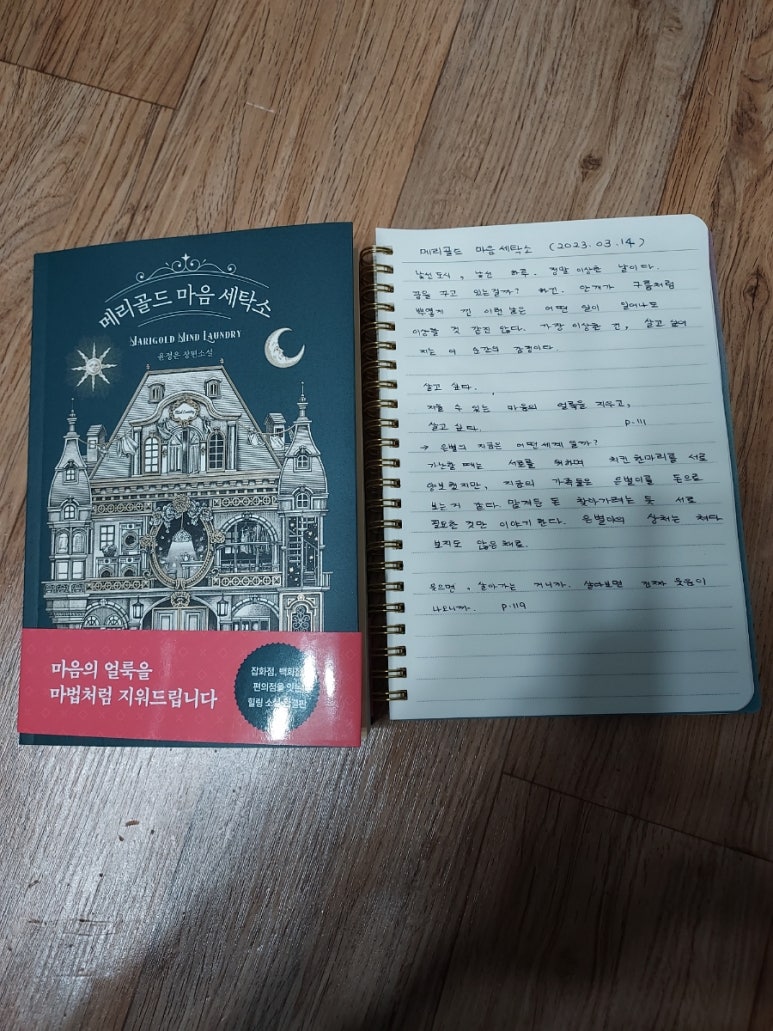 메리골드 마음 세탁소
MARIGOLD MIND LAUNDRY
윤정은 장편소설
마음의 얼룩을
마법처럼 지워드립니다
잡화점, 백화점
편의점을 잇는
힐링 소설
메리골드 마음 세탁소 (2023.03.14)
낯선 도시, 낯선 하루. 정말 이상한 날이다.
꿈을 꾸고 있는걸까? 하긴. 안개가 구름처럼
뿌옇게 낀 이런 날은 어떤 일이 일어나도
이상할 것 같진 않다. 가장 이상한 건, 살고 싶어
지는 이 순간의 감정이다.
살고 싶다.
지울 수 있는 마음의 얼룩을 지우고,
살고 싶다. p.111
→ 은별의 지금은 어떤 세계일까?
가난할 때는 서로를 위하며 치킨 한마리를 서로
양보했지만, 지금의 가족들은 은별이를 돈으로
보는거 같다. 맡겨둔 돈 찾아가려는 듯 서로
필요한 것만 이야기 한다. 은별이의 상처는 쳐다
보지도 않은채로.
웃으면, 살아가는 거니까. 살다보면 진짜 웃음이
나오니까. p.119